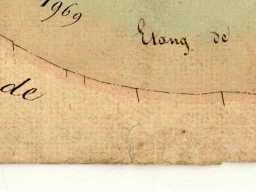 1969
Etang de
de